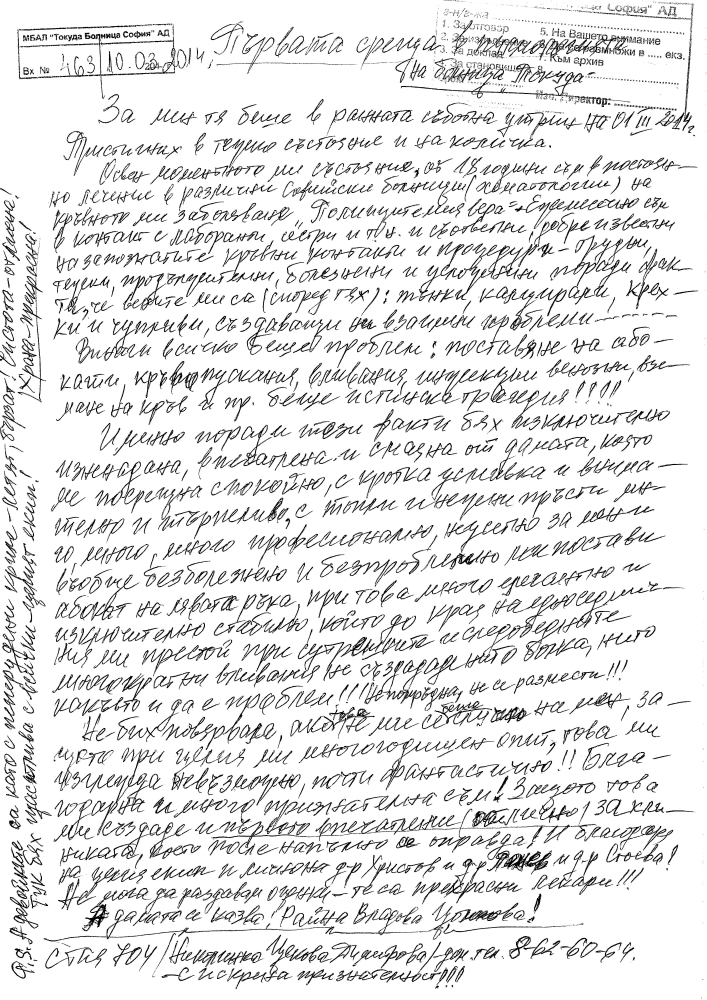 МБАЛ "Токуда Болница София" АД
Вх № 463 10.03.2014,
София" АД
1. За отговор
3. За доклад
4. За становище
5. На Вашето внимание
6. Да се размножи в ..... екз.
7. Към архив
Изп. Директор:
Първата среща с
на болница "Токуда"
За мен тя беше в ранната съботна утрин на 01 III 2014 г.
Пристигнах в тежко състояние и на количка.
Освен моментното ми състояние, от 18 години съм в постоян-
но лечение в различни Софийски болници (хематологии) на
кръвното ми заболяване "Полицитемия вера" + Ежемесечно съм
в контакт с лаборанти, сестри и т.н. и съответни, добре известни
на запознатите кръвни контакти и процедури - трудни,
тежки, продължителни, болезнени и усложнени поради фак-
та, че вените ми са (според тях): тънки, калцирали, крех-
ки и чупливи, създаващи ни взаимни проблеми
Винаги всичко беше проблем: поставяне на або-
кати, кръвопускания, вливания, инжекции венозни, взе-
мане на кръв и пр. беше истинска трагедия!!!!
Именно поради тези факти бях изключително
изненадана, впечатлена и смаяна от дамата, която
ме посрещна спокойно, с кротка усмивка и внима-
телно и търпеливо, с топли и нежни пръсти мно-
го, много, много професионално, неусетно за мен и
въобще безболезнено и безпроблемно ми постави
абокат на лявата ръка, при това много елегантно и
изключително стабилно, който до края на едноседмич-
ния ми престой при сутрешните и следобедните
многократни вливания не създаде нито болка, нито
какъвто и да е проблем!!! Не помръдна, не се размести!!!
Не бих повярвала, ако това не ми се беше случило на мен, за-
щото при целия ми многогодишен опит, това ми
изглежда невъзможно, почти фантастично!! Бла-
годарна и много признателна съм! Защото това
ми създаде и първото впечатление (отлично) за кли-
никата, което после напълно се оправда! И благодаря
на целия екип и лично на д-р Христов и д-р Панев и д-р Стоева!
Не мога да раздавам оценки - те са прекрасни лекари!!!
А дамата се казва: Райна Владова Цонкова!
СТАЯ 704 / Димитринка Цекова Димитрова / дом. тел. 8-62-60-64.
- С искрена признателност!!!
P.S. А девойките са като с пеперудени криле - летят, бързат! Чистота - отлична!
Храна - прекрасна!
Тук бях щастлива с всички - целият екип!